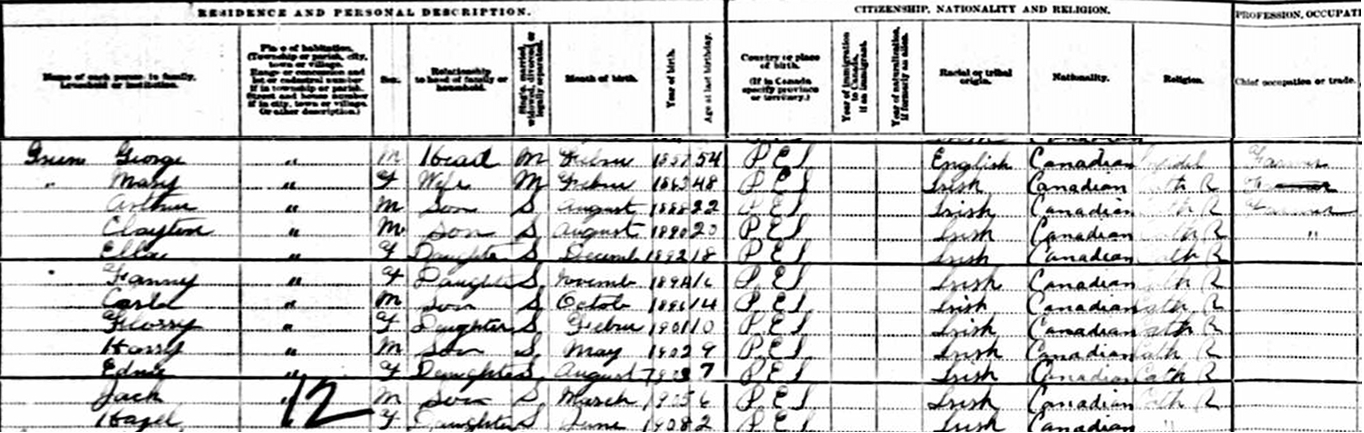 RESIDENCE AND PERSONAL DESCRIPTION. CITIZENSHIP, NATIONALITY AND RELIGION. PROFESSION, OCCUPATI
Name of each person in family, household or institution. Place of habitation. (Township or parish, city, town or village. Range or concession and lot or cadastral number if in township or parish. Street and house number if in city, town or village. Or other description.) Sex. Relationship to head of family or household. Single, married, widowed, divorced or legally separated. Month of birth. Year of birth. Age at last birthday. Country or place of birth. (If in Canada specify province or territory.) Year of immigration to Canada, if an immigrant. Year of naturalization, if formerly an alien. Racial or tribal origin. Nationality. Religion. Chief occupation or trade.
George " M Head M 54 P E I English Canadian Farmer
" Mary " F Wife M 48 P E I Irish Canadian Cath R Farmer
Arthur " M Son S August 1888 22 P E I Irish Canadian Cath R Farmer
Clayton " M Son S August 1890 20 P E I Irish Canadian Cath R "
Ella " F Daughter S Decemb 1892 18 P E I Irish Canadian Cath R
Fanny " F Daughter S Novemb 1894 16 P E I Irish Canadian Cath R
" M Son S Octob 1896 14 P E I Irish Canadian Cath R
Florry " F Daughter S 1901 10 P E I Irish Canadian Cath R
Harry " M Son S May 1902 9 P E I Irish Canadian Cath R
Edna " F Daughter S August 7 P E I Irish Canadian Cath R
Jack " M Son S March 1905 6 P E I Irish Canadian Cath R
Hazel 12 F Daughter S June 1908 2 P E I Irish Canadian "